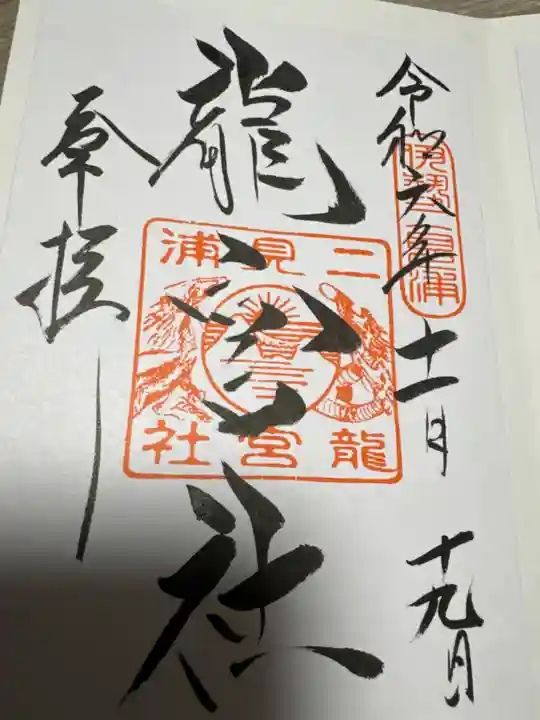 令和六年十一月十九日
龍宮社
奉拝
二見浦
龍宮社